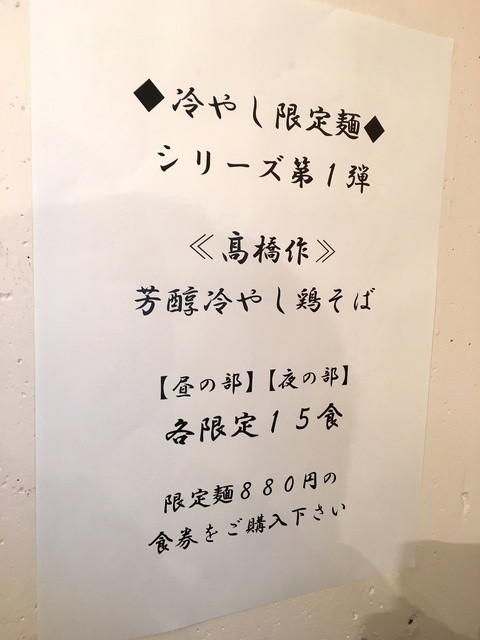 ◆冷やし限定麺◆
シリーズ第1弾
≪髙橋作≫
芳醇冷やし鶏そば
【昼の部】【夜の部】
各限定15食
限定麺880円の
食券をご購入下さい